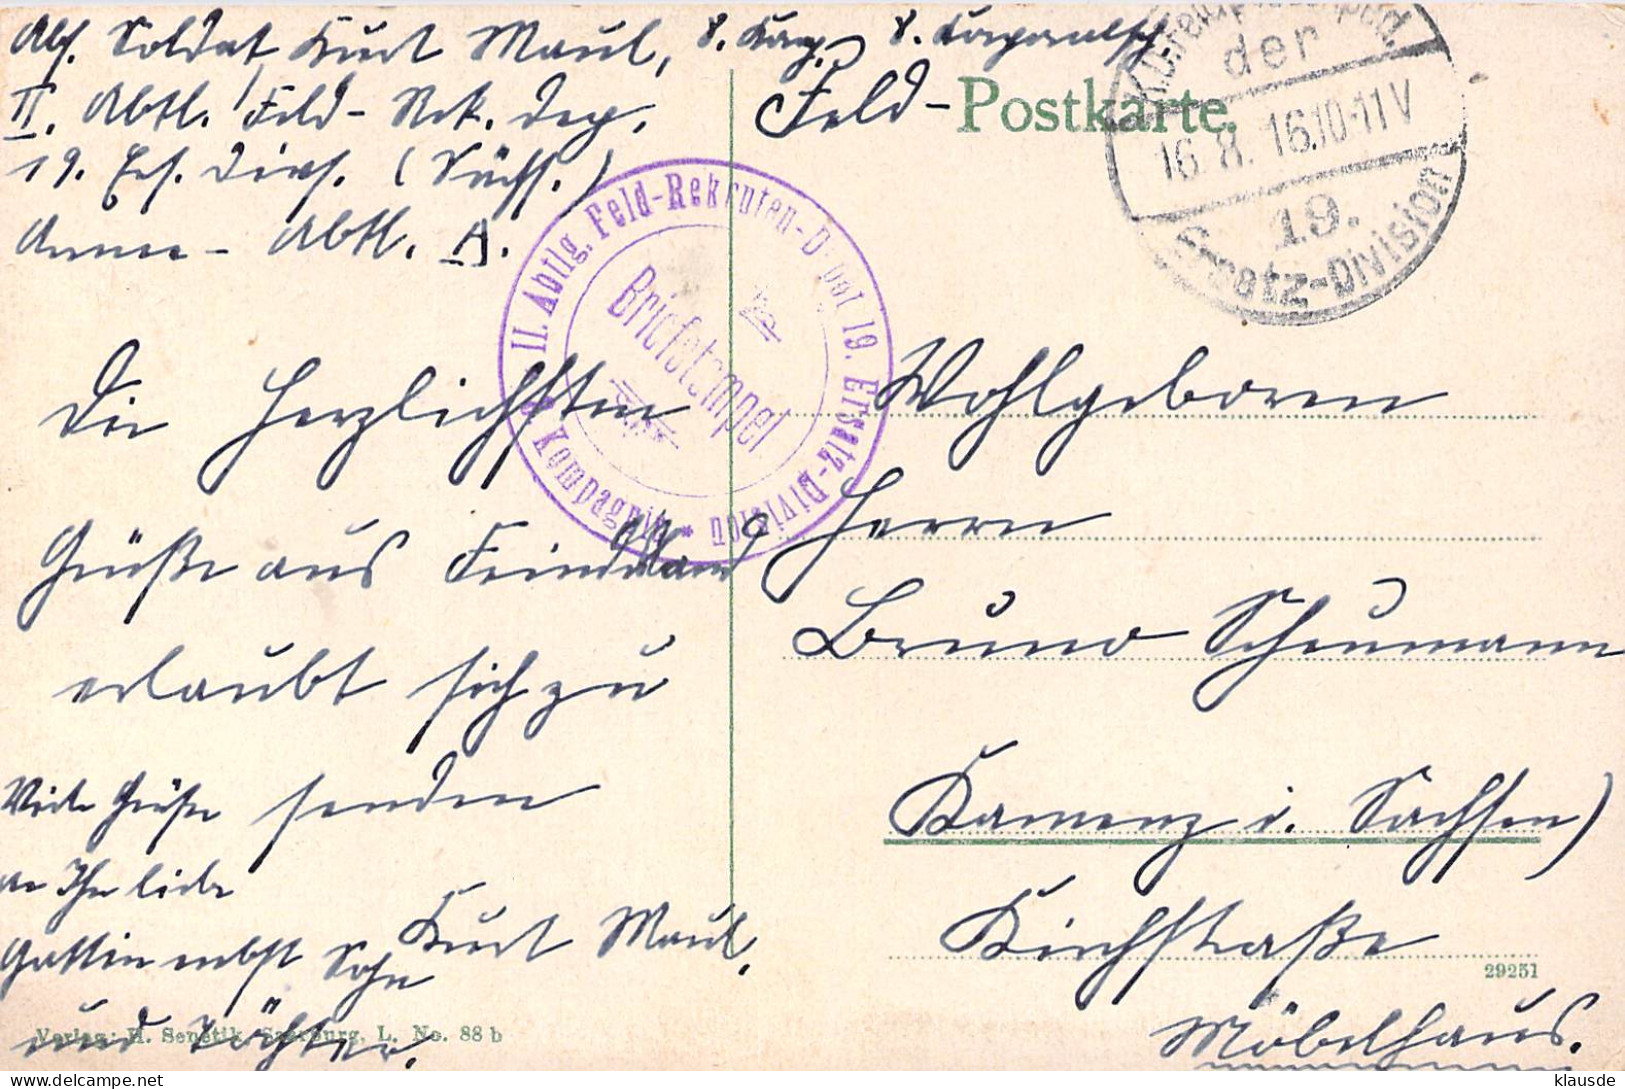 Abs. Soldat Kurt Maul, 8. Komp. 8. Korporalsch.
II. Abtl. Feld-Rek. Dep.
19. Ers. Divs. (Sächs.)
Armee-Abtl. A.
Feld-Postkarte.
der
16.8.16.10-11V
19.
Ersatz-Division
II. Abtlg. Feld-Rekruten-Depot 19. Ersatz-Division *
8. Kompagnie
Briefstempel
Die Herzlichsten
Grüße aus Feindesland
erlaubt sich zu
senden
Kurt Maul.
Viele Grüße
an Ihre liebe
Gattin nebst Sohn
und Töchter.
Wohlgeboren
Herrn
Bruno Scheumann
Kamenz i. Sachsen)
Kirchstraße
Möbelhaus.
29251
Verlag: H. Senetik, Saarburg, L. No. 88 b
klausde